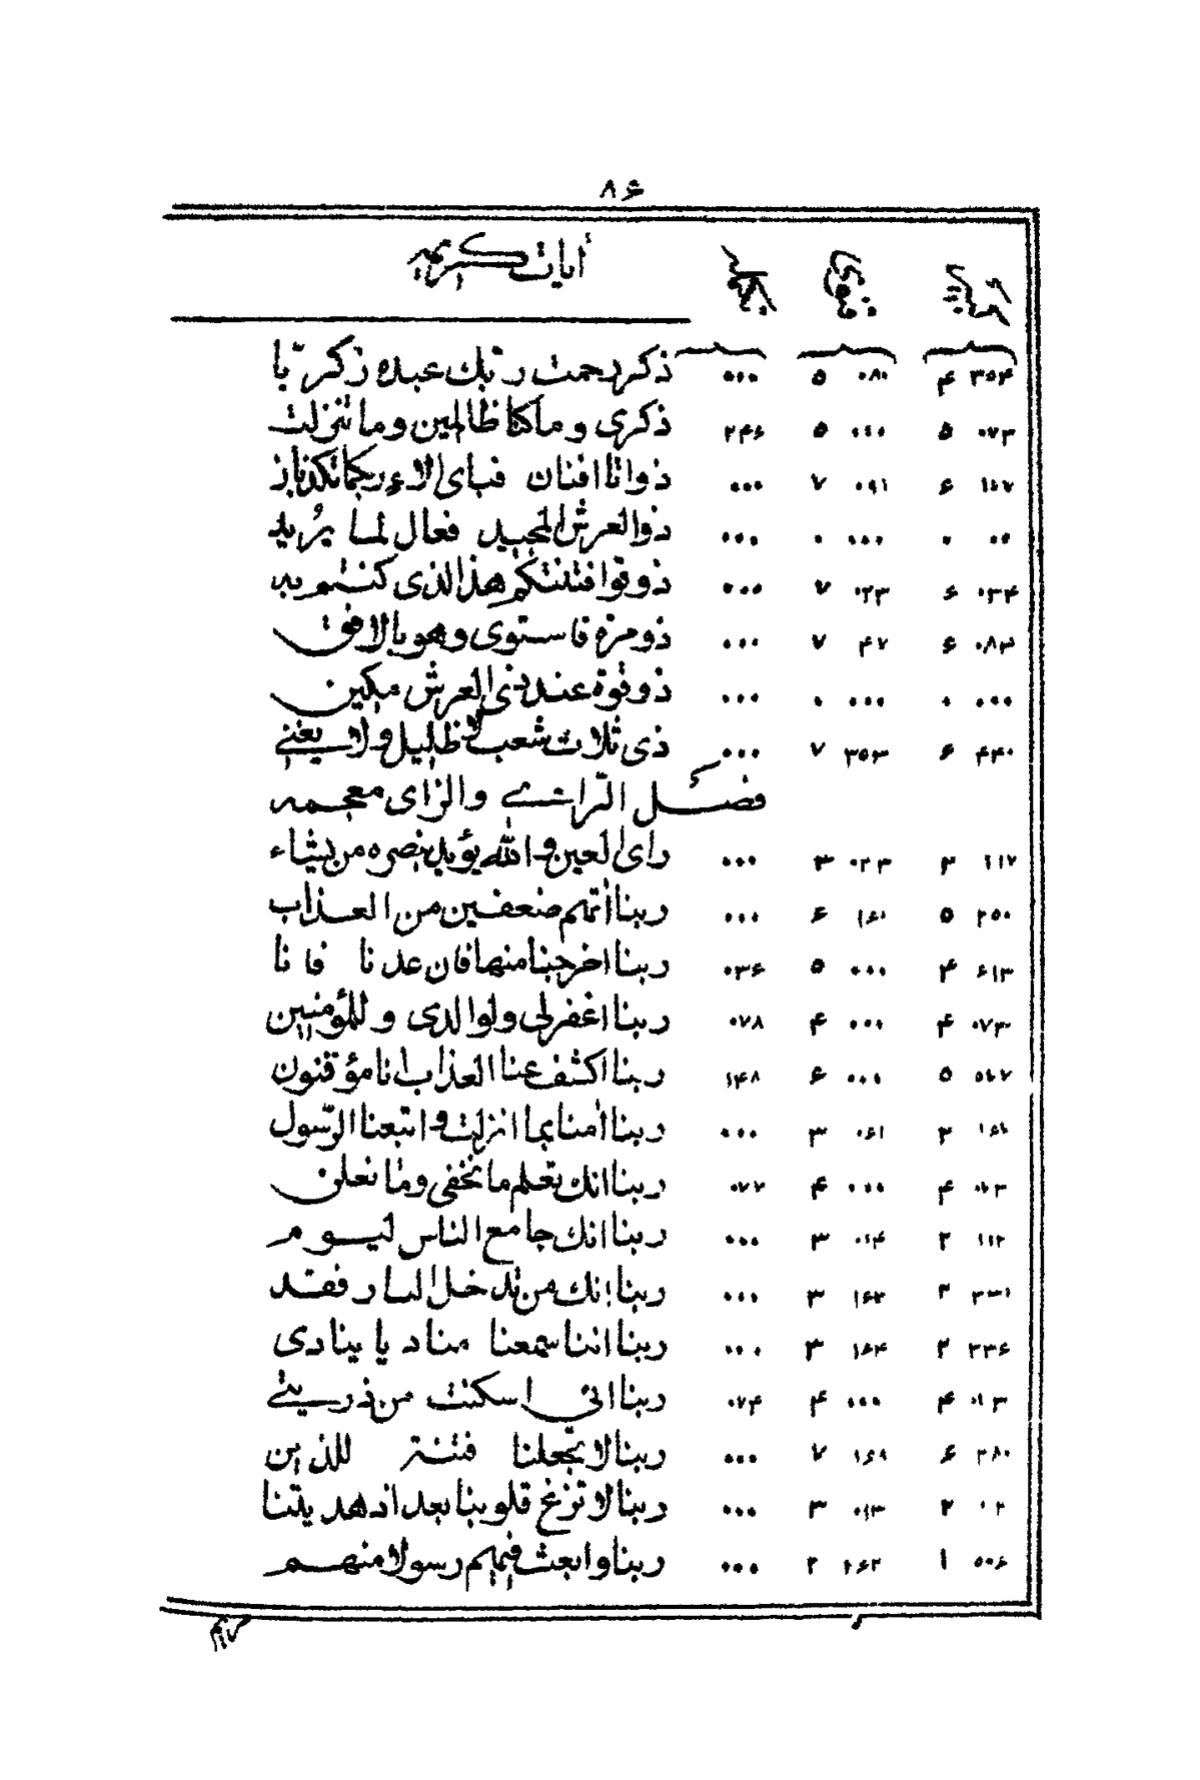 ۸۶
أيات كريمه
۳۵۴ ۴ ۰۸۰ ۵ ۰۰۰ ذكر رحمت ربّك عبده زكريّا
۰۷۳ ۵ ۰۰۰ ۵ ۲۴۶ ذكرى وماكنا ظالمين وما تنزلت
۱۰۷ ۶ ۰۹۱ ۷ ۰۰۰ ذواتا افنان فباى الاء ربكما تكذبان
۰۰۰ ۰ ۰۰۰ ذو العرش المجيد فعال لما يريد
۰۳۴ ۶ ۰۲۳ ۷ ۰۰۰ ذوقوا فتنتكم هذا الذى كنتم به
۰۸۳ ۶ ۴۷ ۷ ۰۰۰ ذو مرة فاستوى وهو بالافق
۰۰۰ ۰ ۰۰۰ ۰ ۰۰۰ ذو قوة عند ذى العرش مكين
۴۴۰ ۶ ۳۵۳ ۷ ۰۰۰ ذى ثلاث شعب لا ظليل ولا يغنى
فصل الرّا والزاى معجمه
۱۱۷ ۳ ۰۲۳ ۳ ۰۰۰ راى العين والله يؤيد بنصره من يشاء
۲۵۰ ۵ ۱۶۰ ۶ ۰۰۰ ربنا اتهم ضعفين من العذاب
۶۱۳ ۴ ۰۰۰ ۵ ۰۳۶ ربنا اخرجنا منها فان عدنا فانا
۰۷۳ ۴ ۰۰۰ ۴ ۰۷۸ ربنا اغفرلى ولوالدى وللمؤمنين
۵ ۰۰۰ ۶ ۱۴۸ ربنا اكشف عنا العذاب انا مؤمنون
۳ ۰۶۱ ۳ ۰۰۰ ربنا أمنا بما انزلت واتبعنا الرّسول
۴ ۰۰۰ ۴ ۰۷۷ ربنا انك تعلم ما نخفى وما نعلن
۱۱۲ ۲ ۰۱۴ ۳ ۰۰۰ ربنا انك جامع الناس ليوم
۲ ۱۶۲ ۳ ۰۰۰ ربنا إنك من تدخل النار فقد
۲۳۶ ۲ ۱۶۴ ۳ ۰۰۰ ربنا اننا سمعنا مناديا ينادى
۴ ۰۰۰ ۴ ۰۷۴ ربنا انى اسكنت من ذريتى
۲۸۰ ۶ ۱۶۹ ۷ ۰۰۰ ربنا لا تجعلنا فتنة للذين
۲ ۰۱۳ ۳ ۰۰۰ ربنا لا تزغ قلوبنا بعد اذ هديتنا
۵۰۶ ۱ ۲۶۲ ۲ ۰۰۰ ربنا وابعث فيهم رسولا منهم